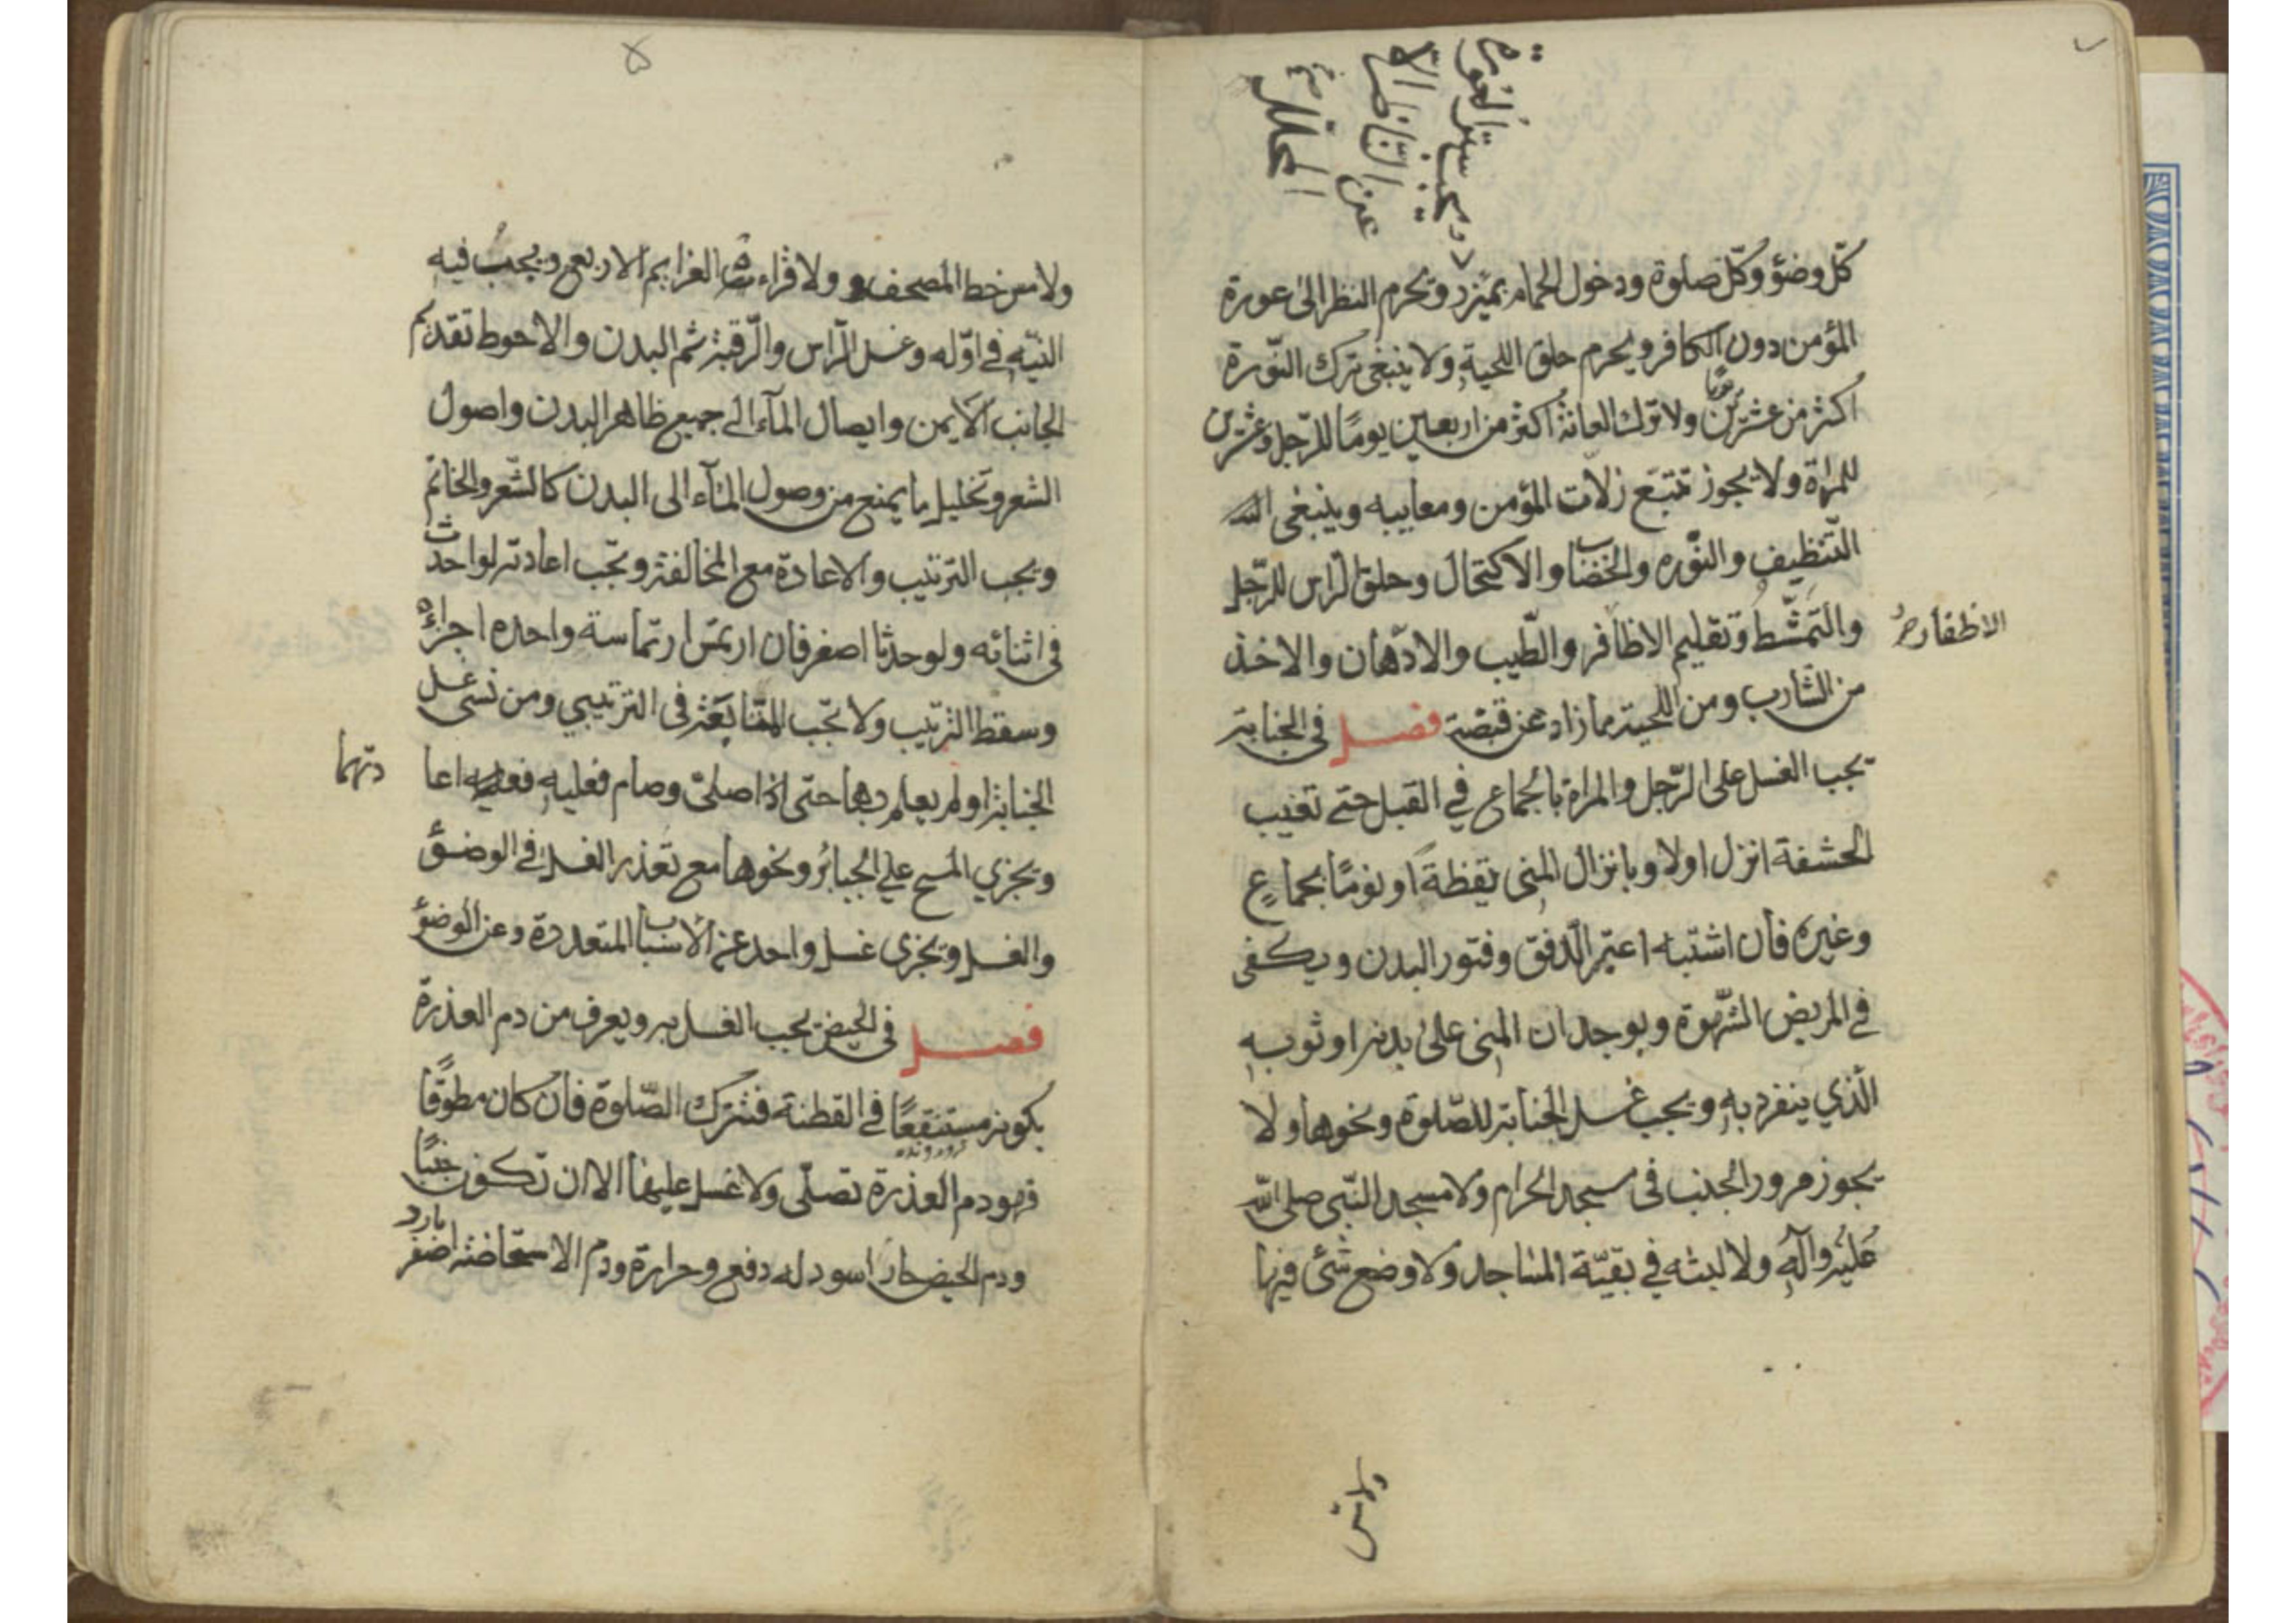 ويجب ستر العورة
عن الناظر الا
المحللة
كلّ وضؤ وكلّ صلوة ودخول الحمام بمئزر وتحرم النظر الىٰ عورة
المؤمن دون الكافر ويحرم حلق اللحية ولا ينبغي ترك النّورة
اكثر من عشرين يومًا ولا ترك العانة اكثر من اربعين يومًا للرّجل وعشرين
للمراة ولا يجوز تتبّع زلات المؤمن ومعايبه وينبغي
التّنظيف والنّوره والخضاب والاكتحال وحلق الرّاس للرّجل
والتّمشّط وتقليم الاظافر والطّيب والادّهان والاخذ
الاظفار
من الشّارب ومن اللّحية مما زاد عن قبضة فصل في الجنابة
يجب الغسل على الرّجل والمراة بالجماع في القبل حتى تغيب
الحشفة انزل اولا وبانزال المني يقظةً او نومًا بجماعٍ
وغيره فان اشتبه اعتبر الّدفق وفتور البدن ويكفى
في المريض الشّهوة وبوجدان المني علىٰ بدنه او ثوبه
الّذي ينفرد به ويجب غسل الجنابة للصّلوة ونحوها ولا
يجوز مرور الجنب فى مسجد الحرام ولا مسجد النّبي صلى اللّه
عليه وآله ولا لبثه في بقيّة المساجد ولا وضع شئ فيها
ولا مس
۵
ولا مس خط المصحف ولا قراءة العزايم الاربع ويجب فيه
النيّه في اوّله وغسل الرّاس والرّقبة ثم البدن والاحوط تقديم
الجانب الايمن وايصال المآء الى جميع ظاهر البدن واصول
الشعر وتخليل ما يمنع من وصول المآء الى البدن كالشّعر والخاتم
ويجب الترتيب والاعادة مع المخالفة وتجب اعادته لو احدث
فى اثنائه ولو حدثا اصغر فان ارتمس ارتماسة واحده اجزأه
وسقط الترتيب ولا تجب المتابعة فى الترتيبي ومن نسى غسل
الجنابة او لم يعلم بها حتى اذا صلىّ وصام فعليه اعا
دتهما
ويجزي المسح على الجبائر ونحوها مع تعذر الغسل في الوضؤ
والغسل ويجزى غسل واحد عن الاسباب المتعددة وعن الوضؤ
فصل فى الحيض يجب الغسل به ويعرف من دم العذرة
بكونه مستنقعًا في القطنة فتترك الصّلوة فان كان مطوقًا
فهو دم العذرة تصلّى ولا غسل عليها الا ان تكون جنبًا
ودم الحيض حار اسود له دفع وحرارة ودم الاستحاضة اصفر بارد